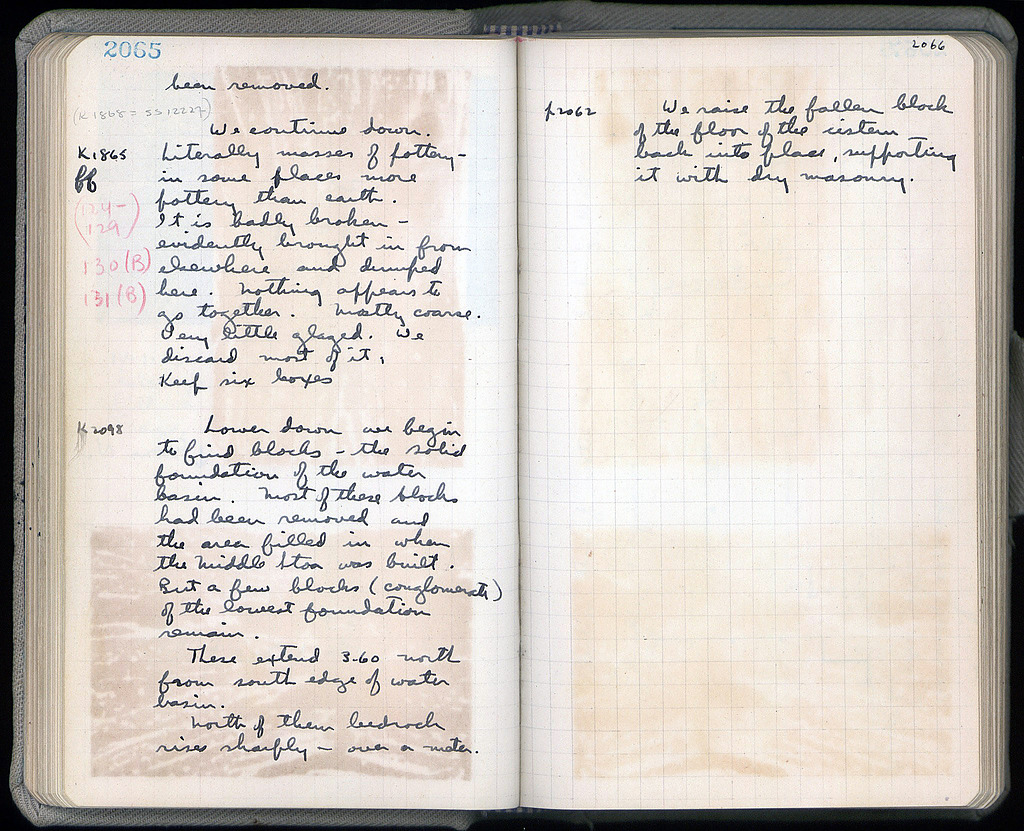 2065
been removed.
(K1868 = SS 12227)
We continue down.
K1865 Literally masses of pottery -
ff in some places more
pottery than earth.
(124-
129)
It is badly broken -
evidently brought in from
130 (B) elsewhere and dumped
131 (B) here. Nothing appears to
go together. Mostly coarse.
Very little glazed. We
discard most of it,
Keep six boxes
K2098 Lower down we begin
to find blocks - the solid
foundation of the water
basin. Most of these blocks
had been removed and
the area filled in when
the Middle Stoa was built.
But a few blocks (conglomerate)
of the lowest foundation
remain.
These extend 3.60 north
from south edge of water
basin.
North of them bedrock
rises sharply - over a meter.
2066
p2062 We raise the fallen block
of the floor of the cistern
back into place, supporting
it with dry masonry.